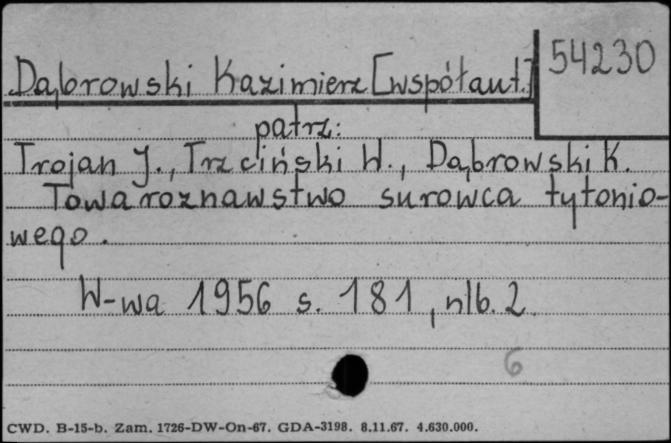 Dąbrowski Kazimierz [współaut.]
54230
patrz:
Trojan J., Trzciński W., Dąbrowski K.
Towaroznawstwo surowca tytonio-
wego.
W-wa 1956 s. 181, nlb. 2
6
CWD. B-15-b. Zam. 1726-DW-On-67. GDA-3198. 8.11.67. 4.630.000.